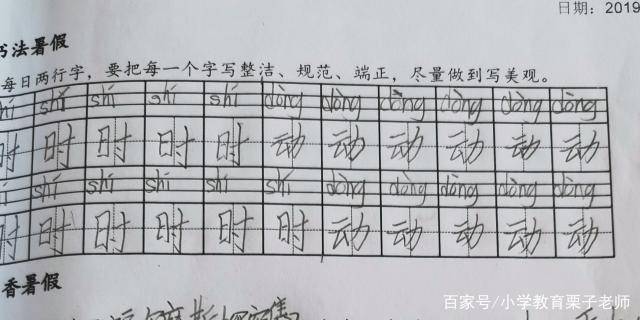 日期：2019
书法暑假
每日两行字，要把每一个字写整洁、规范、端正，尽量做到写美观。
hí shí shí shí shí dòng dòng dòng dòng dòng dòng
时 时 时 时 时 动 动 动 动 动 动
í shí shí shí shí shí dòng dòng dòng dòng dòng
时 时 时 时 时 时 动 动 动 动 动
香暑假
百家号/小学教育栗子老师